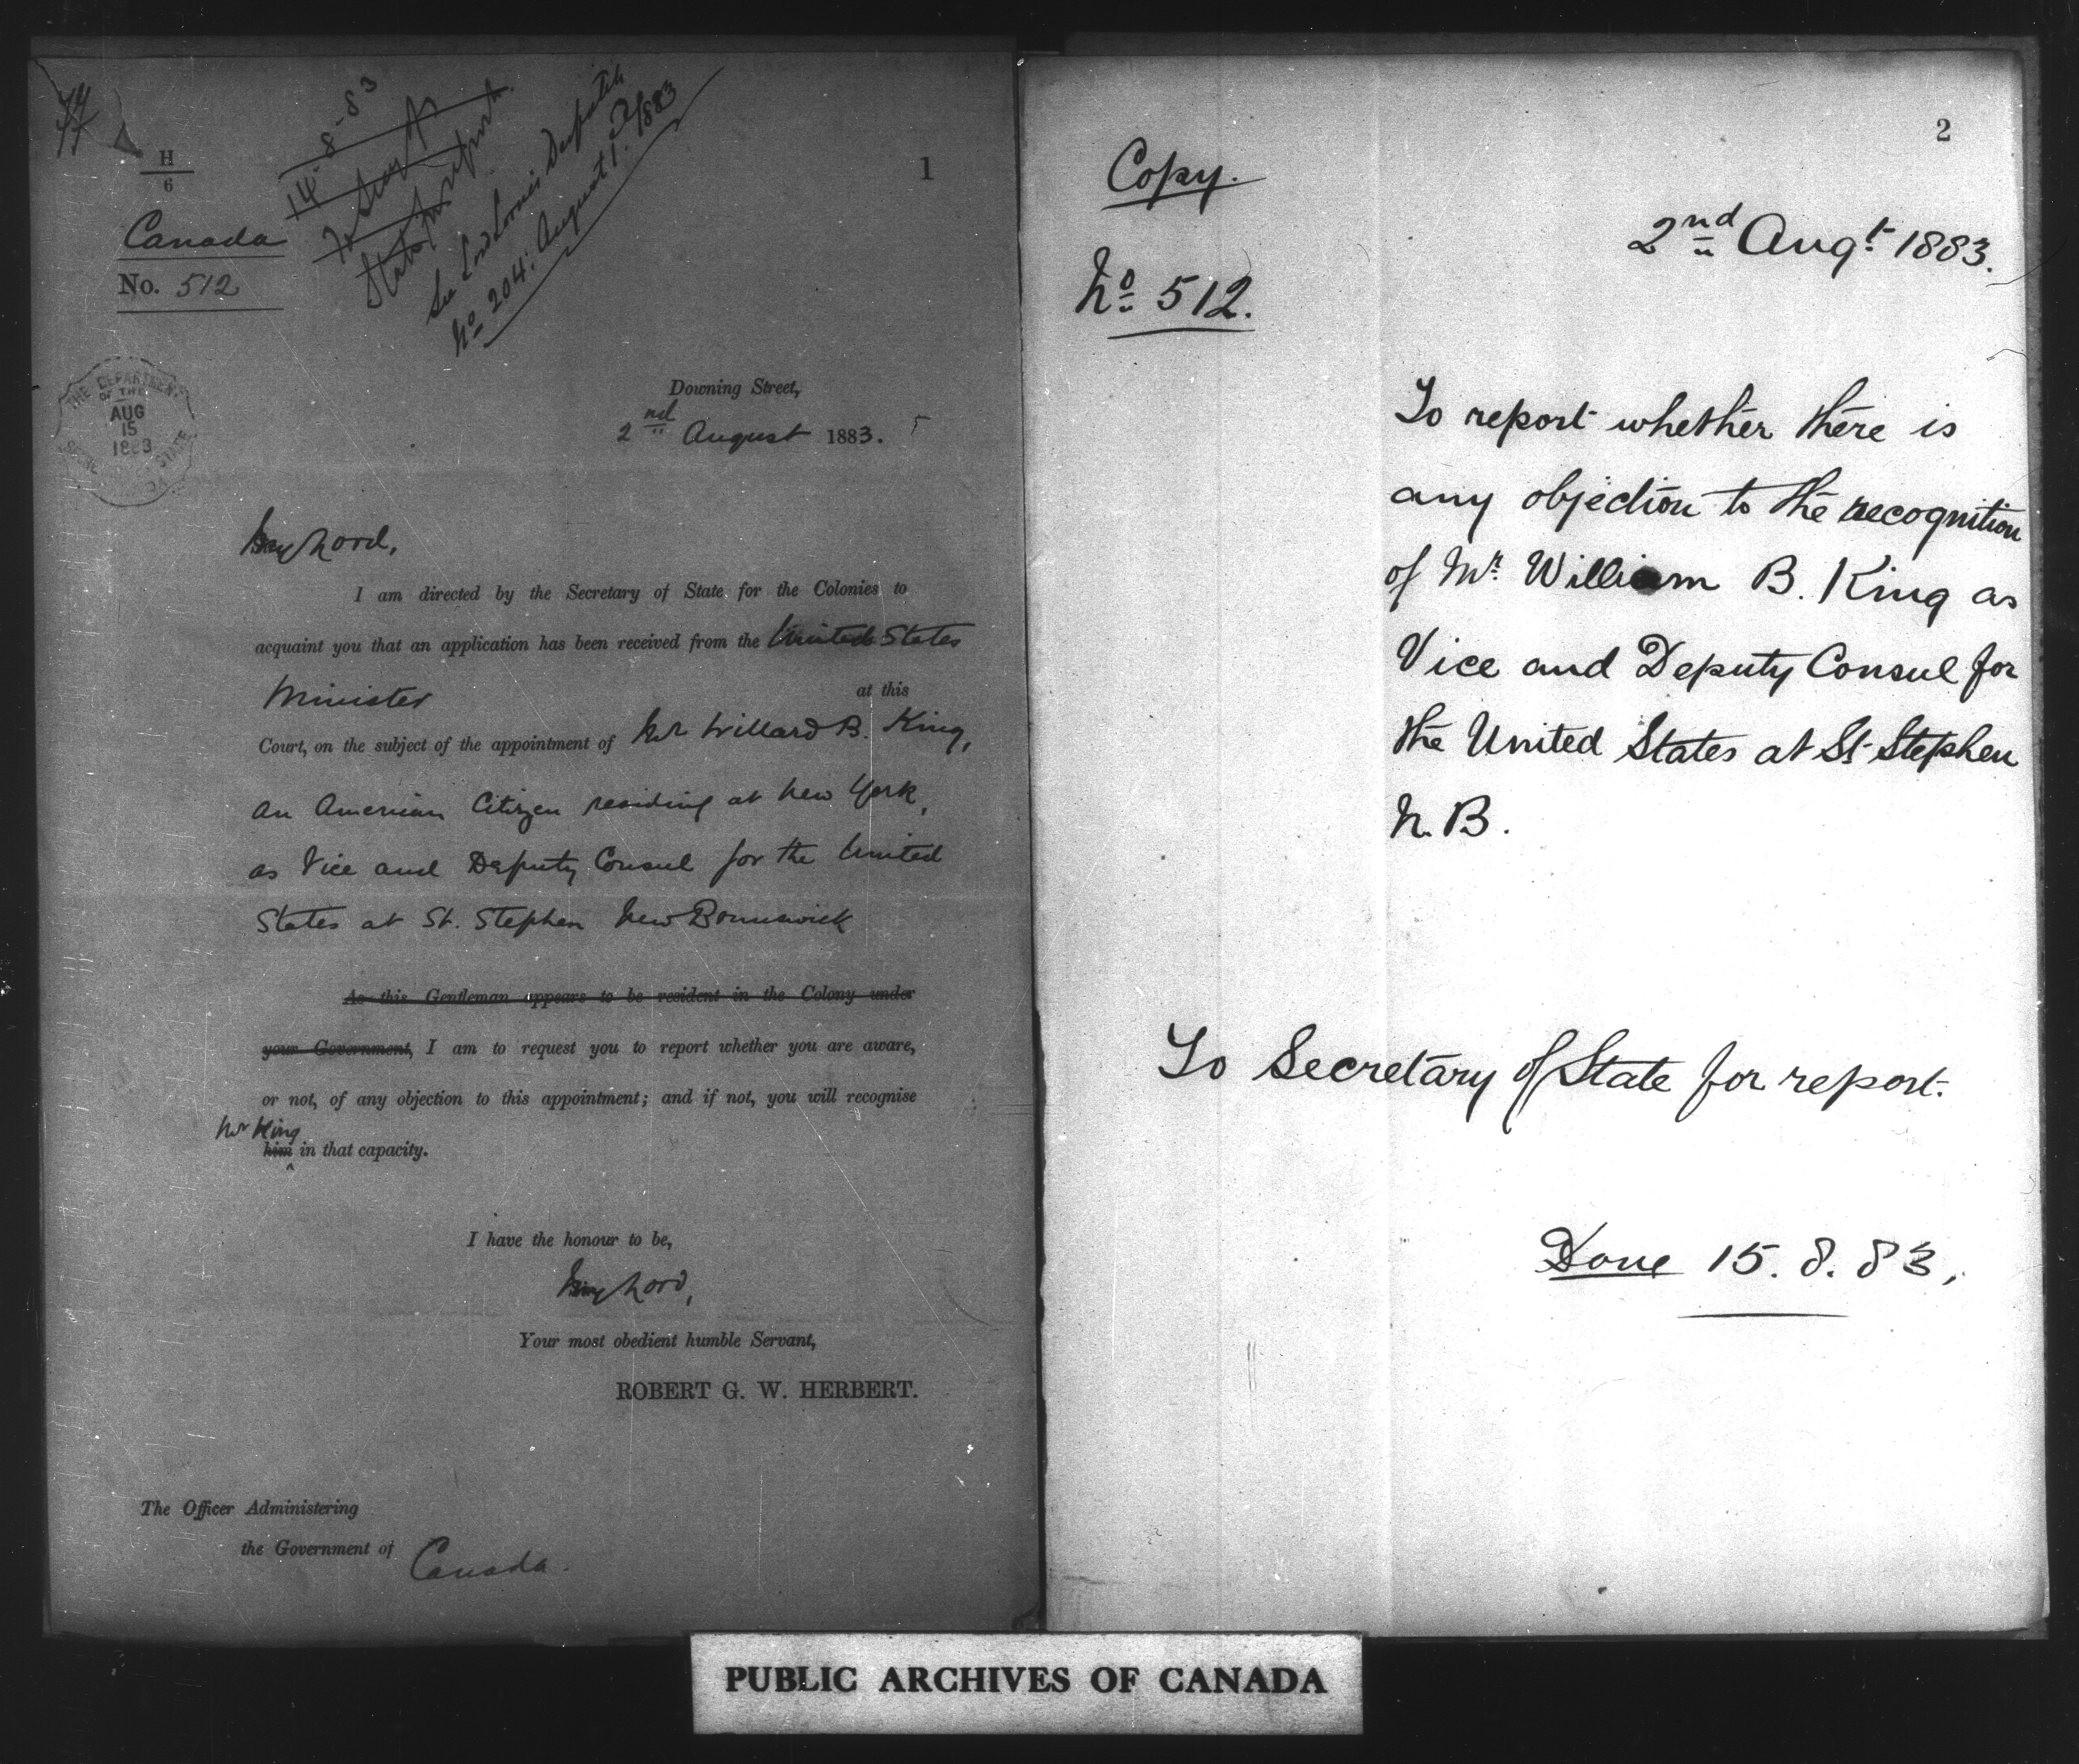 14-8-83
See Lord Lorne's Despatch
No 204: August 1. 1883
H
6
1
Canada
No. 512
THE DEPARTMENT
OF THE
AUG
15
1883
STATE
Downing Street,
2nd August 1883.
My Lord,
I am directed by the Secretary of State for the Colonies to
acquaint you that an application has been received from the United States
Minister at this
Court, on the subject of the appointment of Mr Willard B. King,
an American Citizen residing at New York,
as Vice and Deputy Consul for the United
States at St. Stephen New Brunswick
As this Gentleman appears to be resident in the Colony under
your Government, I am to request you to report whether you are aware,
or not, of any objection to this appointment; and if not, you will recognise
Mr King
him in that capacity.
I have the honour to be,
My Lord,
Your most obedient humble Servant,
ROBERT G. W. HERBERT.
The Officer Administering
the Government of Canada.
2
Copy.
2nd Augt. 1883.
No 512.
To report whether there is
any objection to the recognition
of Mr. William B. King as
Vice and Deputy Consul for
the United States at St Stephen
N. B.
To Secretary of State for report.
Done 15. 8. 83,
PUBLIC ARCHIVES OF CANADA